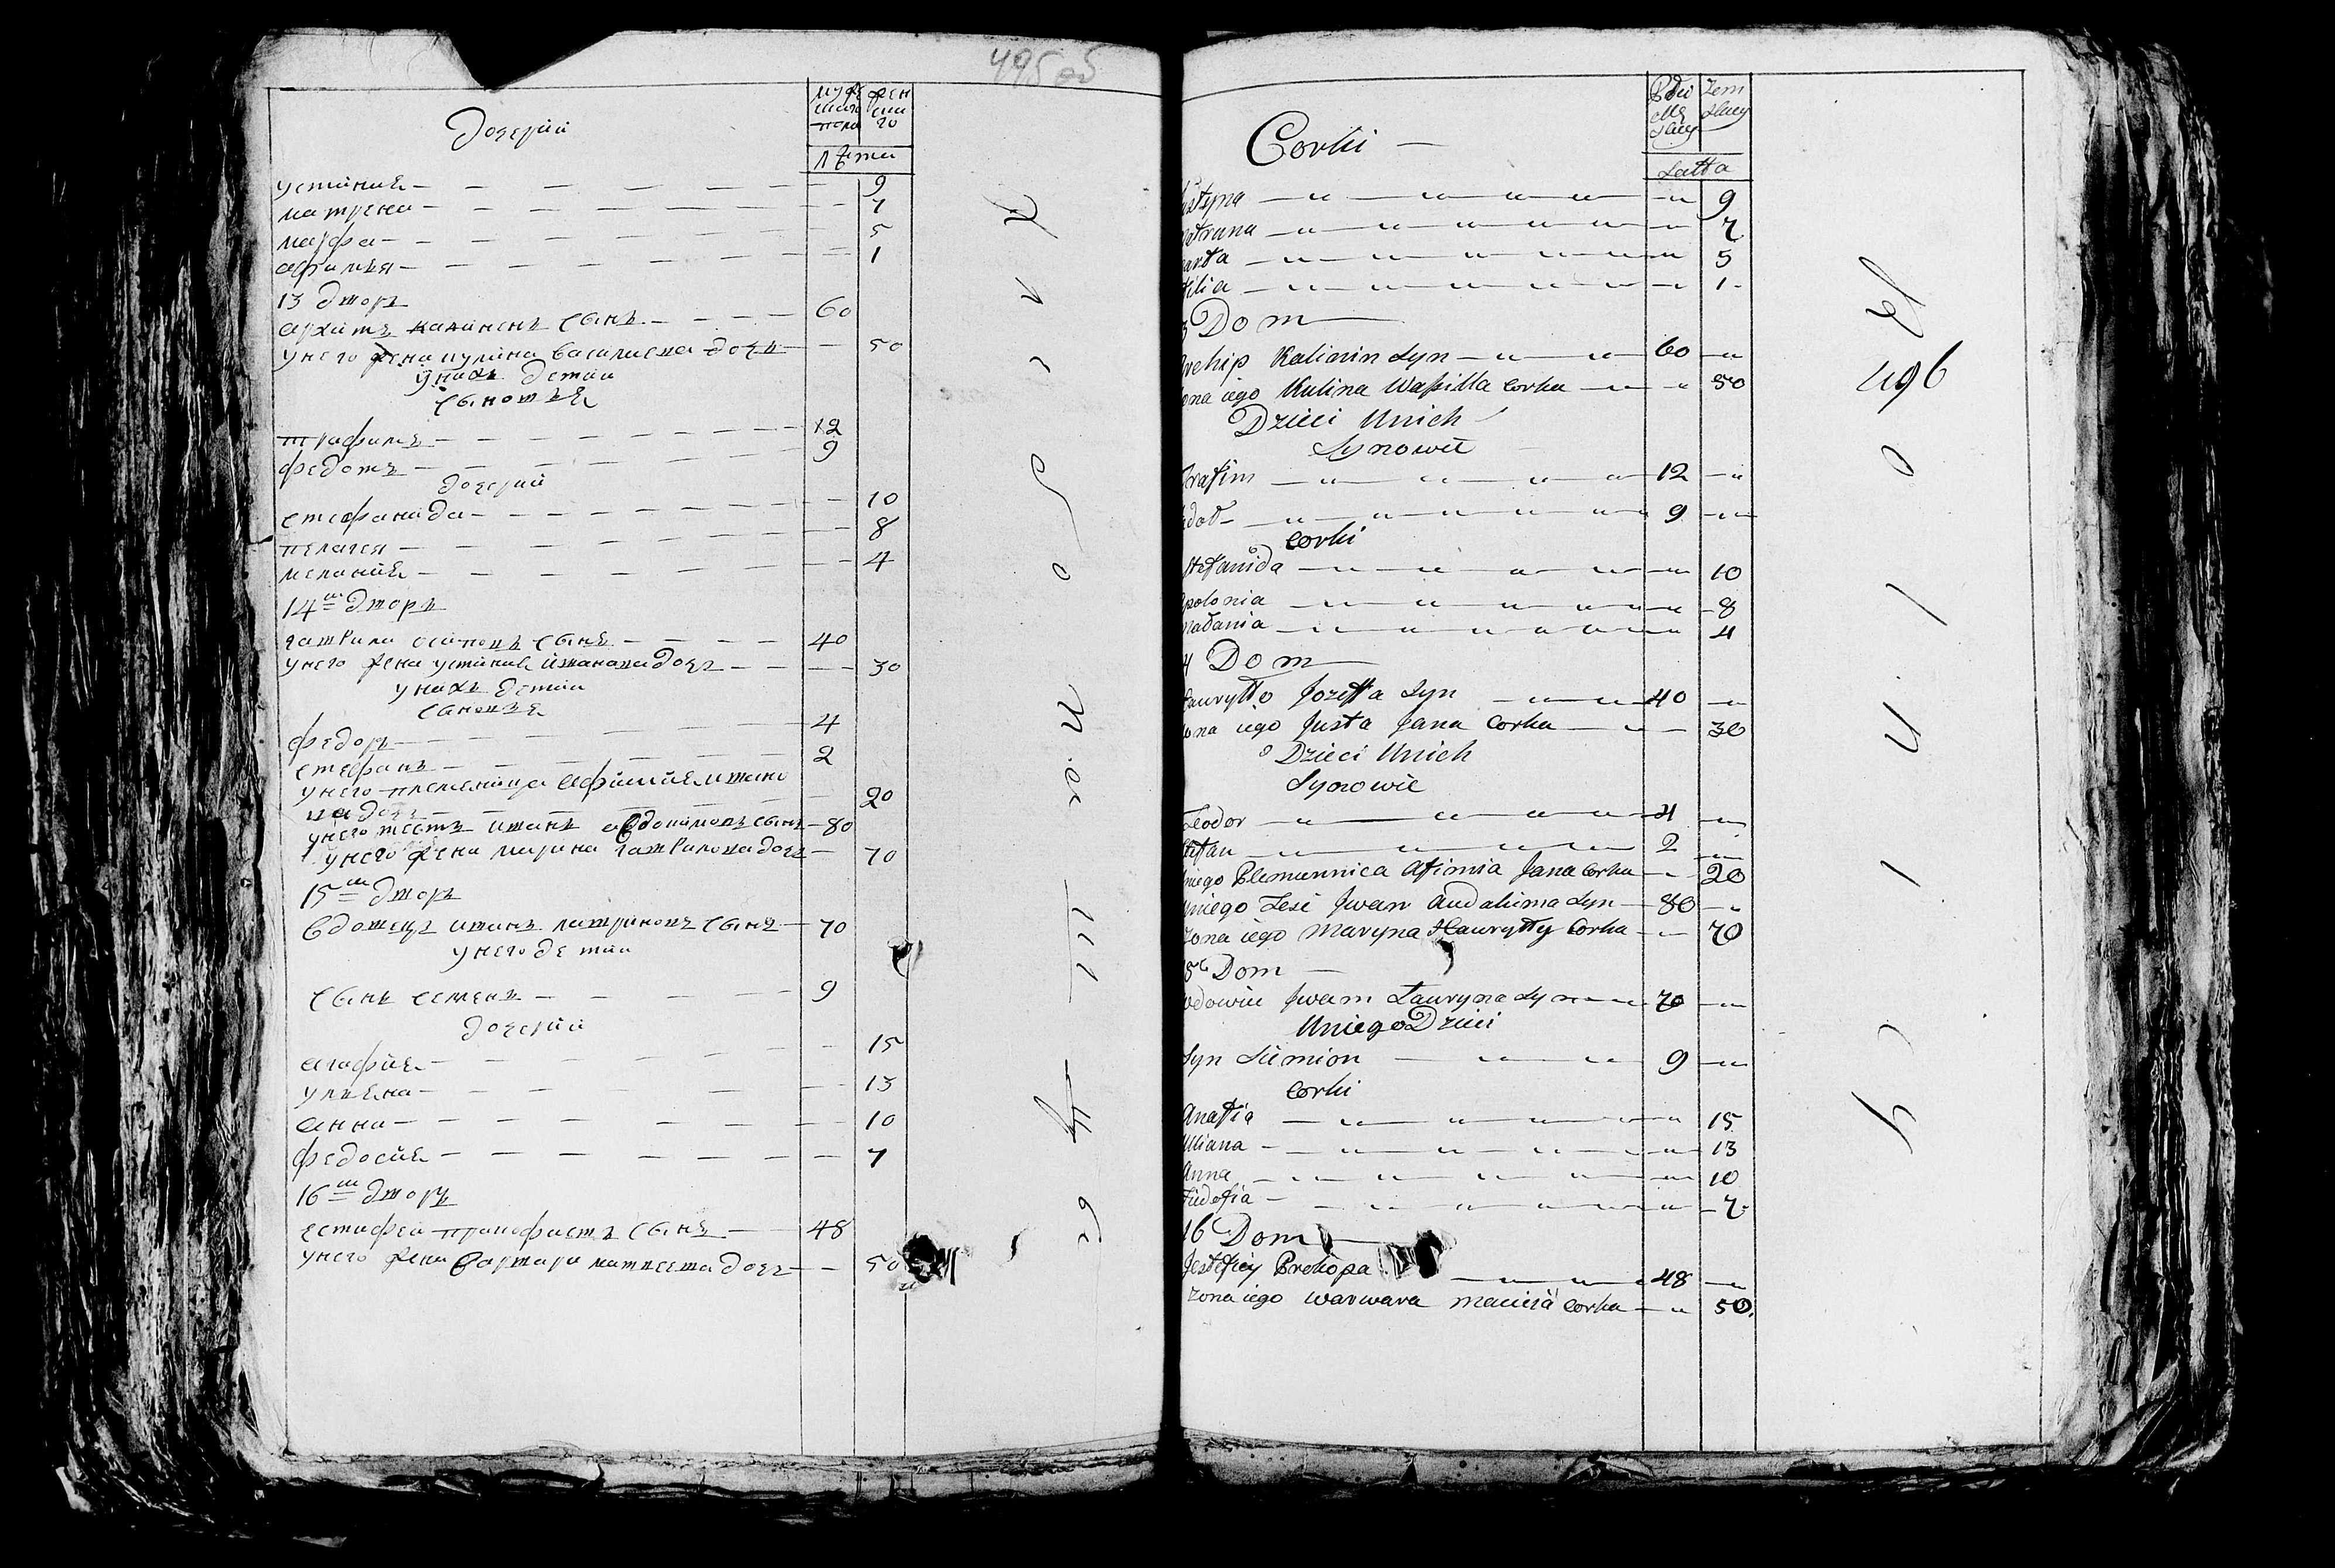 495 об
дочерии
мужеска пола
женска го
лѣта
устинія 9
матрена 7
марфа 5
афимья 1
13 дворъ
архипъ калининъ сынъ 60
у него жена кулина василиева дочь 50
у нихъ детии
сыновья
трафимъ 12
федотъ 9
дочерии
стефанида 10
пелагея 8
мелания 4
14й дворъ
гаврила осиповъ сынъ 40
у него жена устиния иванова дочь 30
у нихъ детии
сыновья
федоръ 4
стефанъ 2
у него племеница афимия ивано
ва дочь 20
у него тесть иванъ авдокимовъ сынъ 80
у него жена марина гаврилова дочь 70
15й дворъ
вдовецъ иванъ лавриновъ сынъ 70
у него детии
сынъ семенъ 9
дочерии
агафия 15
ульяна 13
анна 10
федосия 7
16й дворъ
естифеи 48
у него жена варвара матвеева дочь 50
Corki
Płci
Mę
skiey
Żeni
skiey
Latta
ustyna 9
atruna 7
arta 5
filia 1
3 Dom
rchip Kalinin Syn 60
ona iego Kulina Wasilla Corka 50
Dzieci Unich
Synowie
Trafim 12
edot 9
Corki
Stefanida 10
polonia 8
nadania 4
4 Dom
awryłło Jozeffa Syn 40
ona iego Justa Jana Corka 30
Dzieci Unich
Synowie
Teodor 4
Steffan 2
niego Plemiennica Afimia Jana Corka 20
Uniego Teść Jwan Audakima Syn 80
Zona iego Maryna Hawryłły Corka 70
5 Dom
Wdowiec Jwan Lauryna Syn 70
Uniego Dzieci
Syn Siemion 9
Corki
Anafia 15
Uliana 13
Anna 10
Fiedosia 7
16 Dom
Jestefiey Prokopa 48
Zona iego Warwara Macieia Corka 50
496